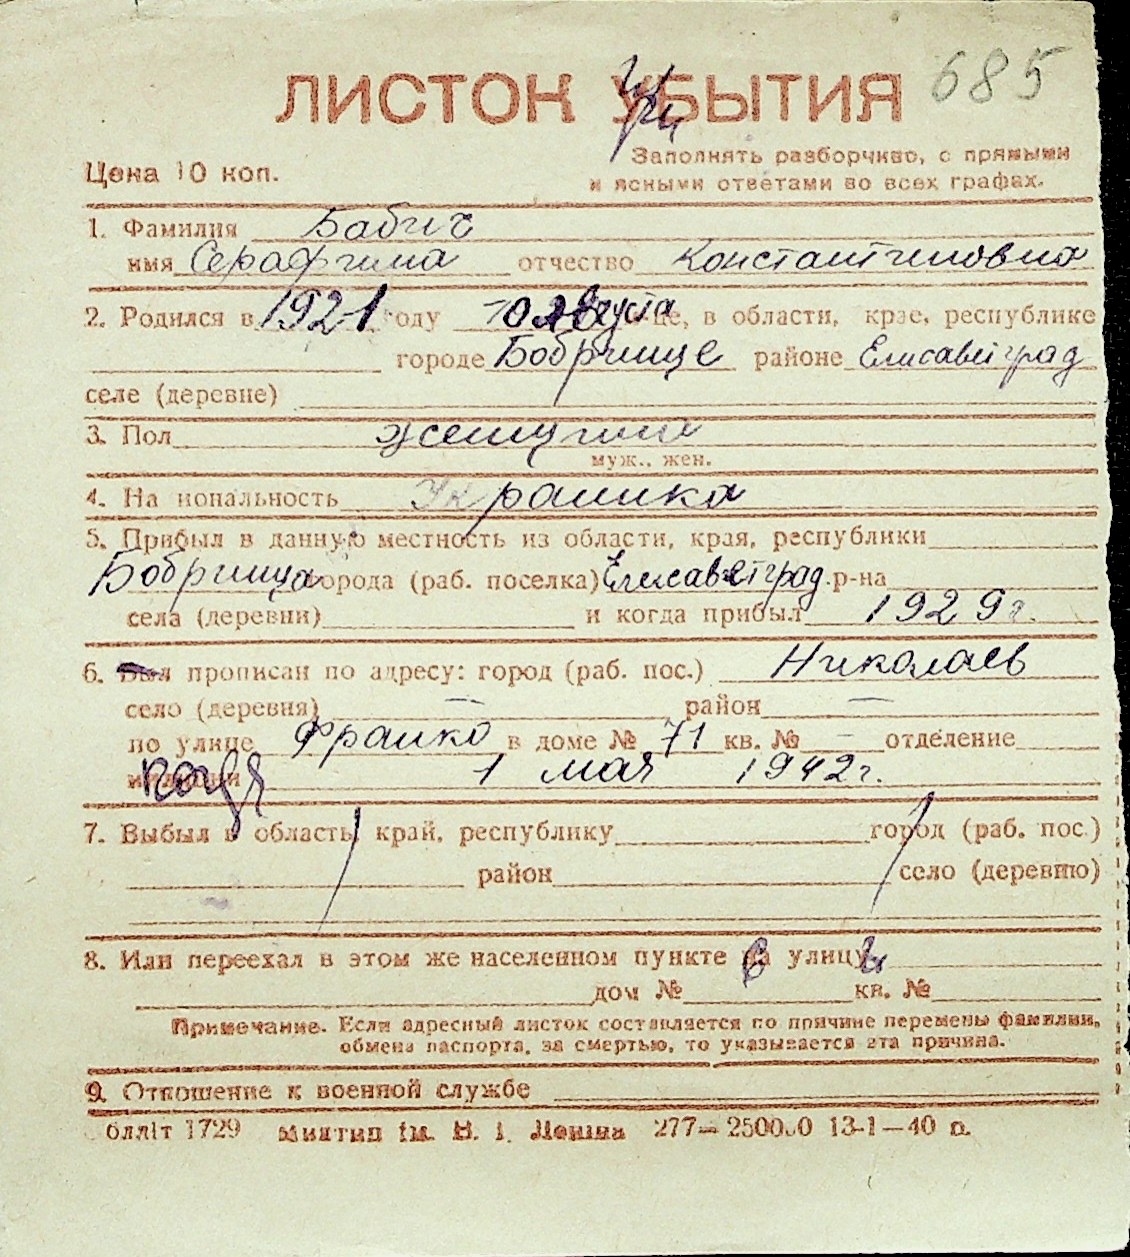 685
ЛИСТОК УБЫТИЯ
Цена 10 коп.
Заполнять разборчиво, с прямыми
и ясными ответами во всех графах.
1. Фамилия Бабич
имя Серафима отчество Константиновна
2. Родился в 1921 году 10 августа це, в области, крае, республике
городе Бобринце районе Елисаветград
селе (деревне)
3. Пол женщина
муж., жен.
4. Национальность Украинка
5. Прибыл в данную местность из области, края, республики
Бобринца города (раб. поселка) Елисаветград р-на
села (деревни) и когда прибыл 1929 г.
6. Был прописан по адресу: город (раб. пос.) Николаев
село (деревня) — район —
по улице Франко в доме № 71 кв. № — отделение
милиции когда 1 мая 1942 г.
7. Выбыл в область, край, республику город (раб. пос.)
район село (деревню)
8. Или переехал в этом же населенном пункте на улицу
дом № кв. №
Примечание. Если адресный листок составляется по причине перемены фамилии,
обмена паспорта, за смертью, то указывается эта причина.
9. Отношение к военной службе
блліт 1729 Миктип ім. В. І. Леніна 277—250000 13-1—40 п.